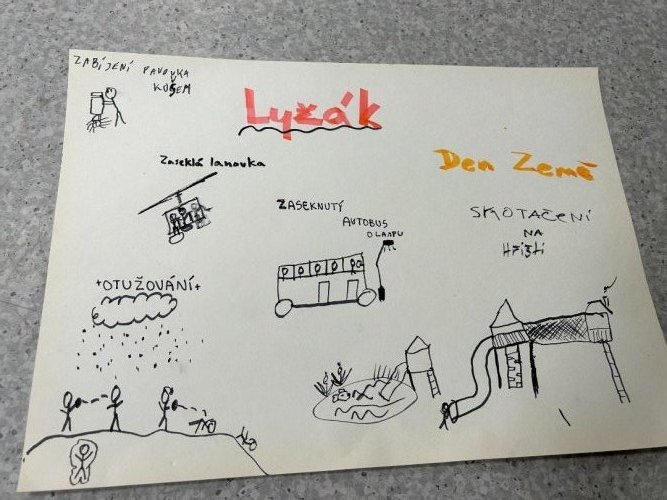 ZABÍJENÍ PAVOUKA
KOŠEM
Lyžák
Zaseklá lanovka
Den Země
ZASEKNUTÝ
AUTOBUS
O LAMPU
SKOTAČENÍ
NA
HŘIŠTI
+OTUŽOVÁNÍ+